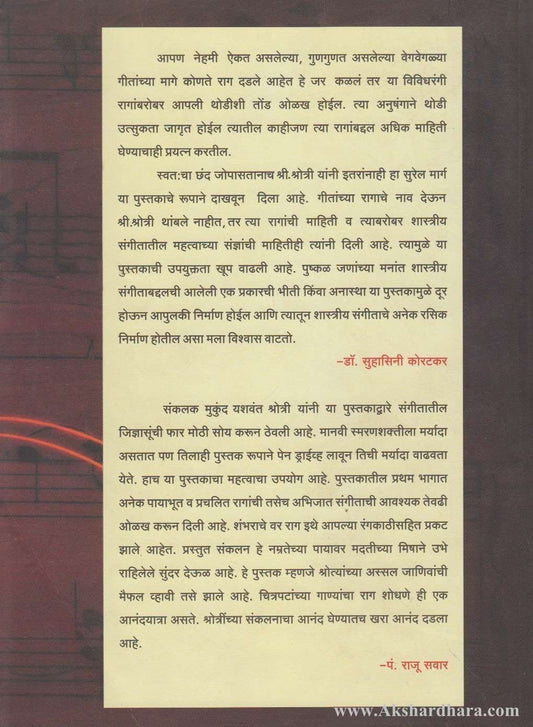 आपण नेहमी ऐकत असलेल्या, गुणगुणत असलेल्या वेगवेगळ्या
गीतांच्या मागे कोणते राग दडले आहेत हे जर कळलं तर या विविधरंगी
रागांबरोबर आपली थोडीशी तोंड ओळख होईल. त्या अनुषंगाने थोडी
उत्सुकता जागृत होईल त्यातील काहीजण त्या रागांबद्दल अधिक माहिती
घेण्याचाही प्रयत्न करतील.
स्वतःचा छंद जोपासतानाच श्री.श्रोत्री यांनी इतरांनाही हा सुरेल मार्ग
या पुस्तकाचे रूपाने दाखवून दिला आहे. गीतांच्या रागाचे नाव देऊन
श्री.श्रोत्री थांबले नाहीत, तर त्या रागांची माहिती व त्याबरोबर शास्त्रीय
संगीतातील महत्वाच्या संज्ञांची माहितीही त्यांनी दिली आहे. त्यामुळे या
पुस्तकाची उपयुक्तता खूप वाढली आहे. पुष्कळ जणांच्या मनांत शास्त्रीय
संगीताबद्दलची आलेली एक प्रकारची भीती किंवा अनास्था या पुस्तकामुळे दूर
होऊन आपुलकी निर्माण होईल आणि त्यातून शास्त्रीय संगीताचे अनेक रसिक
निर्माण होतील असा मला विश्वास वाटतो.
-डॉ. सुहासिनी कोरटकर
संकलक मुकुंद यशवंत श्रोत्री यांनी या पुस्तकाद्वारे संगीतातील
जिज्ञासूंची फार मोठी सोय करून ठेवली आहे. मानवी स्मरणशक्तीला मर्यादा
असतात पण तिलाही पुस्तक रूपाने पेन ड्राईव्ह लावून तिची मर्यादा वाढवता
येते. हाच या पुस्तकाचा महत्वाचा उपयोग आहे. पुस्तकातील प्रथम भागात
अनेक पायाभूत व प्रचलित रागांची तसेच अभिजात संगीताची आवश्यक तेवढी
ओळख करून दिली आहे. शंभराचे वर राग इथे आपल्या रंगकाठीसहित प्रकट
झाले आहेत. प्रस्तुत संकलन हे नम्रतेच्या पायावर मदतीच्या मिषाने उभे
राहिलेले सुंदर देऊळ आहे. हे पुस्तक म्हणजे श्रोत्यांच्या अस्सल जाणिवांची
मैफल व्हावी तसे झाले आहे. चित्रपटांच्या गाण्यांचा राग शोधणे ही एक
आनंदयात्रा असते. श्रोत्रींच्या संकलनाचा आनंद घेण्यातच खरा आनंद दडला
आहे.
-पं. राजू सवार
www.Akshardhara.com